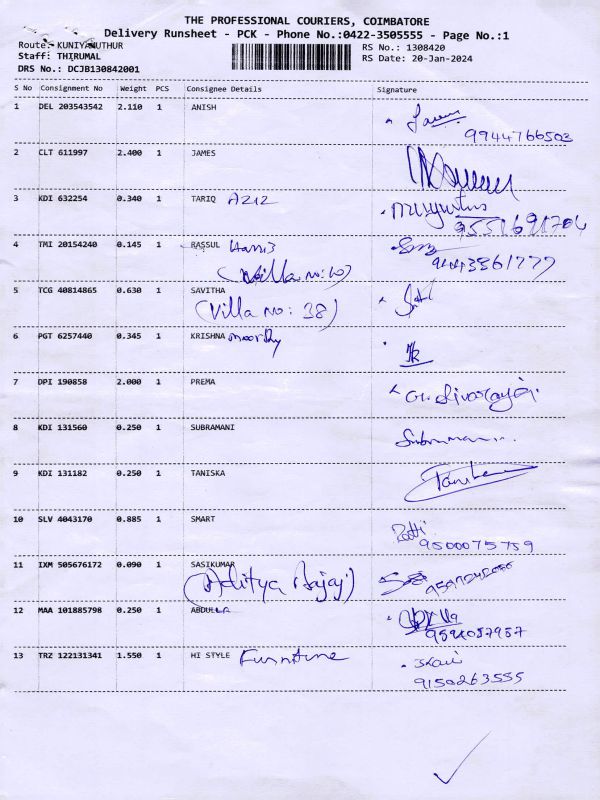 THE PROFESSIONAL COURIERS, COIMBATORE
Delivery Runsheet - PCK - Phone No.:0422-3505555 - Page No.:1
Route: KUNIYAMUTHUR
RS No.: 1308420
Staff: THIRUMAL
RS Date: 20-Jan-2024
DRS No.: DCJB130842001
S No Consignment No Weight PCS Consignee Details Signature
1 DEL 203543542 2.110 1 ANISH
9944766503
2 CLT 611997 2.400 1 JAMES
3 KDI 632254 0.340 1 TARIQ AZIZ
4 TMI 20154240 0.145 1 RASSUL
5 TCG 40814865 0.630 1 SAVITHA
(Villa no: 38)
6 PGT 6257440 0.345 1 KRISHNA moorthy
7 DPI 190858 2.000 1 PREMA
8 KDI 131560 0.250 1 SUBRAMANI
9 KDI 131182 0.250 1 TANISKA
10 SLV 4043170 0.885 1 SMART
9500075759
11 IXM 505676172 0.090 1 SASIKUMAR
(Aditya Bajaj)
12 MAA 101885798 0.250 1 ABDULLA
13 TRZ 122131341 1.550 1 HI STYLE Furniture
9150263555